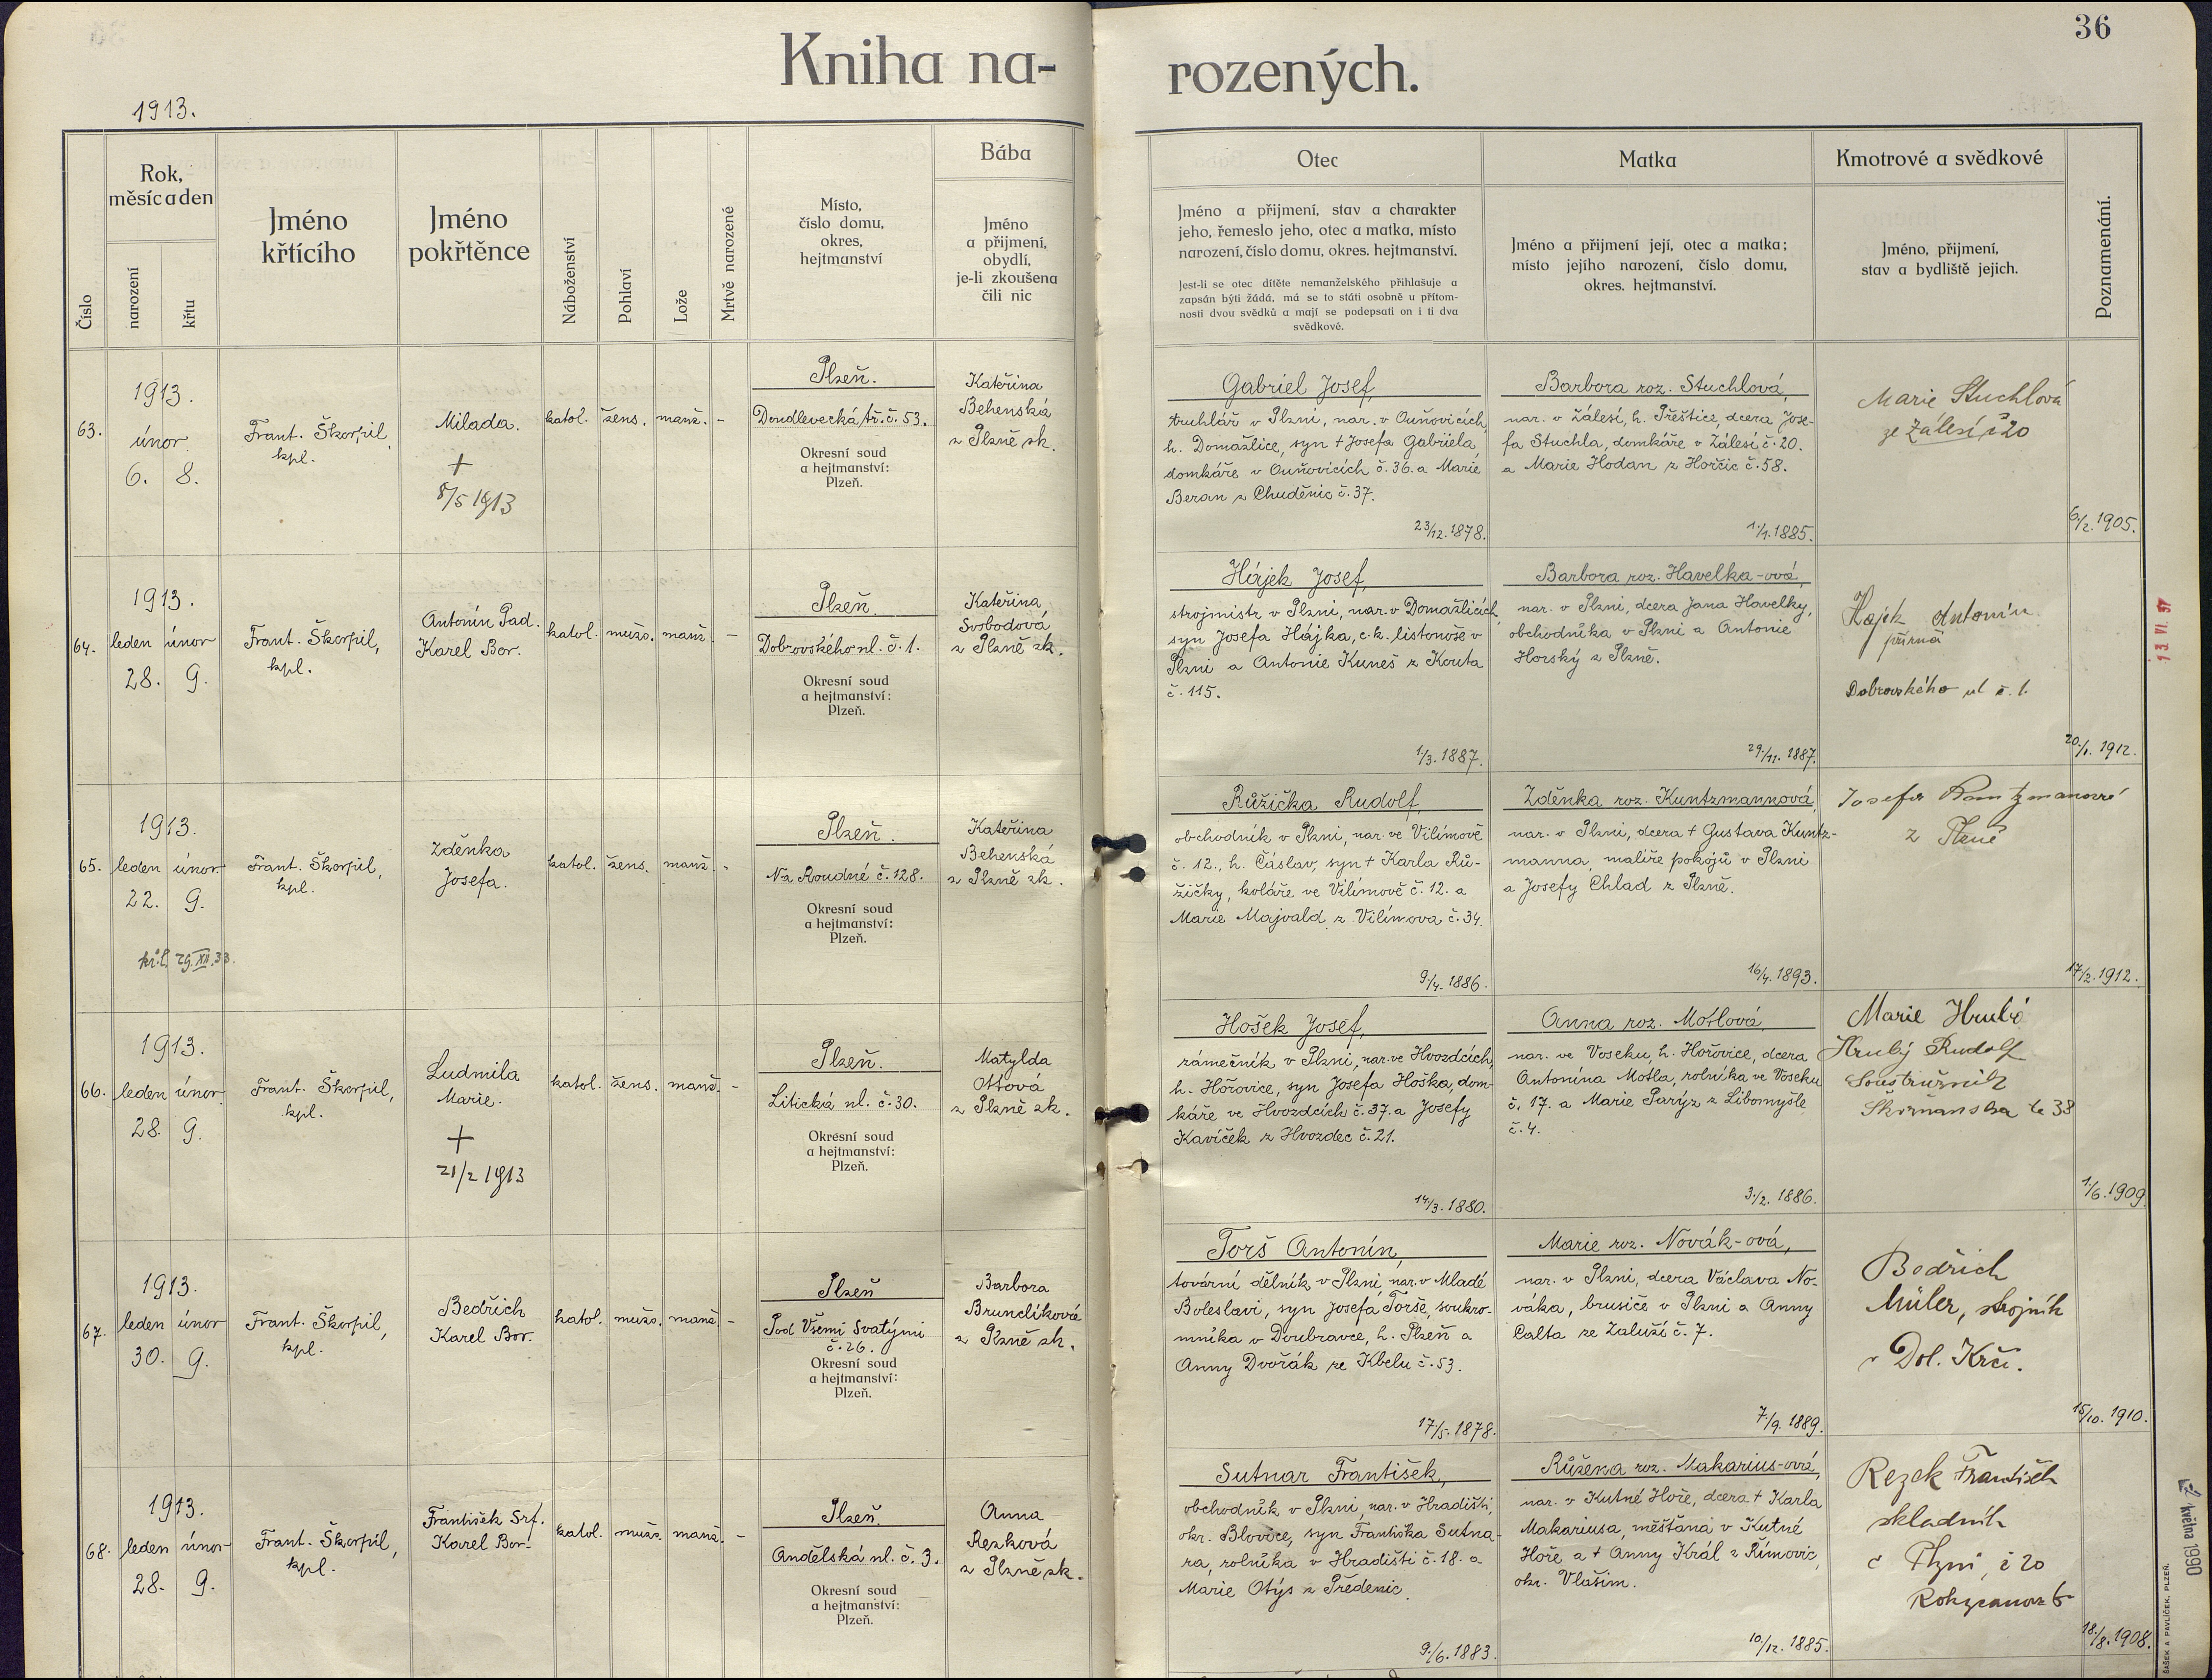 36
Kniha na-
rozených.
1913.
Číslo
Rok,
měsíc a den
narození
křtu
Jméno
křtícího
Jméno
pokřtěnce
Náboženství
Pohlaví
Lože
Mrtvě narozené
Místo,
číslo domu,
okres,
hejtmanství
Bába
Jméno
a přijmení,
obydlí,
je-li zkoušena
čili nic
Otec
Jméno a přijmení, stav a charakter
jeho, řemeslo jeho, otec a matka, místo
narození, číslo domu, okres. hejtmanství.
Jest-li se otec dítěte nemanželského přihlašuje a
zapsán býti žádá, má se to státi osobně u přítom-
nosti dvou svědků a mají se podepsati on i ti dva
svědkové.
Matka
Jméno a přijmení její, otec a matka;
místo jejího narození, číslo domu,
okres. hejtmanství.
Kmotrové a svědkové
Jméno, přijmení,
stav a bydliště jejich.
Poznamenání.
63.
1913.
únor
6. 8.
Frant. Škorpil,
kpl.
Milada.
+
8/5 1913
katol.
žens.
manž.
-
Plzeň.
Doudlevecká tř. č. 53.
Okresní soud
a hejtmanství:
Plzeň.
Kateřina
Behenská
z Plzně zk.
Gabriel Josef,
truhlář v Plzni, nar. v Ouňovicích,
h. Domažlice, syn † Josefa Gabriela,
domkáře v Ouňovicích č. 36. a Marie
Beran z Chuděnic č. 37.
23/12. 1878.
Barbora roz. Stuchlová,
nar. v Zálesí, h. Přeštice, dcera Jose-
fa Stuchla, domkáře v Zálesí č. 20.
a Marie Hodan z Horčic č. 58.
1./1. 1885.
Marie Stuchlová
ze Zálesí č 20
6/2. 1905.
64.
1913.
leden únor
28. 9.
Frant. Škorpil,
kpl.
Antonín Pad.
Karel Bor.
katol.
mužs.
manž.
-
Plzeň
Dobrovského ul. č. 1.
Okresní soud
a hejtmanství:
Plzeň.
Kateřina
Svobodová
z Plzně zk.
Hájek Josef,
strojmistr v Plzni, nar. v Domažlicích,
syn Josefa Hájka, c. k. listonoše v
Plzni a Antonie Kuneš z Kouta
č. 115.
1./3. 1887.
Barbora roz. Havelka-ová,
nar. v Plzni, dcera Jana Havelky,
obchodníka v Plzni a Antonie
Horský z Plzně.
29./11. 1887.
Hajek Antonín
Dobrovského ul č. 1.
20./1. 1912.
13 VI. 37
65.
1913.
leden únor
22. 9.
29. XII. 33.
Frant. Škorpil,
kpl.
Zdeňka
Josefa.
katol.
žens.
manž.
-
Plzeň.
Na Roudné č. 128.
Okresní soud
a hejtmanství:
Plzeň.
Kateřina
Behenská
z Plzně zk.
Růžička Rudolf,
obchodník v Plzni, nar. ve Vilímově
č. 12., h. Čáslav, syn † Karla Rů-
žičky, koláře ve Vilímově č. 12. a
Marie Majvald z Vilímova č. 34.
9./4. 1886.
Zdeňka roz. Kuntzmannová,
nar. v Plzni, dcera † Gustava Kuntz-
manna, malíře pokojů v Plzni
a Josefy Chlad z Plzně.
16/4. 1893.
Josefa
z Plzně
17/2. 1912.
66.
1913.
leden únor
28. 9.
Frant. Škorpil,
kpl.
Ludmila
Marie.
+
21/2 1913
katol.
žens.
manž.
-
Plzeň.
Litická ul. č. 30.
Okresní soud
a hejtmanství:
Plzeň.
Matylda
Ottova
z Plzně zk.
Hošek Josef,
zámečník v Plzni, nar. ve Hvozdcích,
h. Hořovice, syn Josefa Hoška, dom-
káře ve Hvozdcích č. 37. a Josefy
Kavíček z Hvozdec č. 21.
14./3. 1880.
Anna roz. Motlová
nar. ve Voseku, h. Hořovice, dcera
Antonína Motla, rolníka ve Voseku
č. 17. a Marie Parýz z Libomyšle
č. 4.
3./2. 1886.
Marie Hrubá
Hrubý Rudolf
Soustružník
38
1./6. 1909.
67.
1913.
leden únor
30. 9.
Frant. Škorpil,
kpl.
Bedřich
Karel Bor.
katol.
mužs.
manž.
-
Plzeň
Pod Všemi Svatými
č. 26.
Okresní soud
a hejtmanství:
Plzeň.
Barbora
Brunclíková
z Plzně zk.
Torš Antonín,
tovární dělník v Plzni, nar. v Mladé
Boleslavi, syn Josefa Torše, soukro-
mníka v Doubravce, h. Plzeň a
Anny Dvořák ze Kbelu č. 53.
17./5. 1878.
Marie roz. Novák-ová,
nar. v Plzni, dcera Václava No-
váka, brusiče v Plzni a Anny
Calta ze Zaluží č. 7.
7./9. 1889.
Bedřich
Müler, strojník
v Dol. Krči.
15/10. 1910.
68.
1913.
leden únor
28. 9.
Frant. Škorpil,
kpl.
František Srf.
Karel Bor.
katol.
mužs.
manž.
-
Plzeň.
Andělská ul. č. 3.
Okresní soud
a hejtmanství:
Plzeň.
Anna
Renková
z Plzně zk.
Sutnar František,
obchodník v Plzni, nar. v Hradišti,
okr. Blovice, syn Františka Sutna-
ra, rolníka v Hradišti č. 18. a
Marie Otýs z Předenic.
9./6. 1883.
Růžena roz. Makarius-ová,
nar. v Kutné Hoře, dcera † Karla
Makariusa, měšťana v Kutné
Hoře a † Anny Král z Římovic,
okr. Vlašim.
10./12. 1885.
Rezek František
skladník
v Plzni, č 20
18./8. 1908.
května 1990
ŠAŠEK A PAVLÍČEK, PLZEŇ.